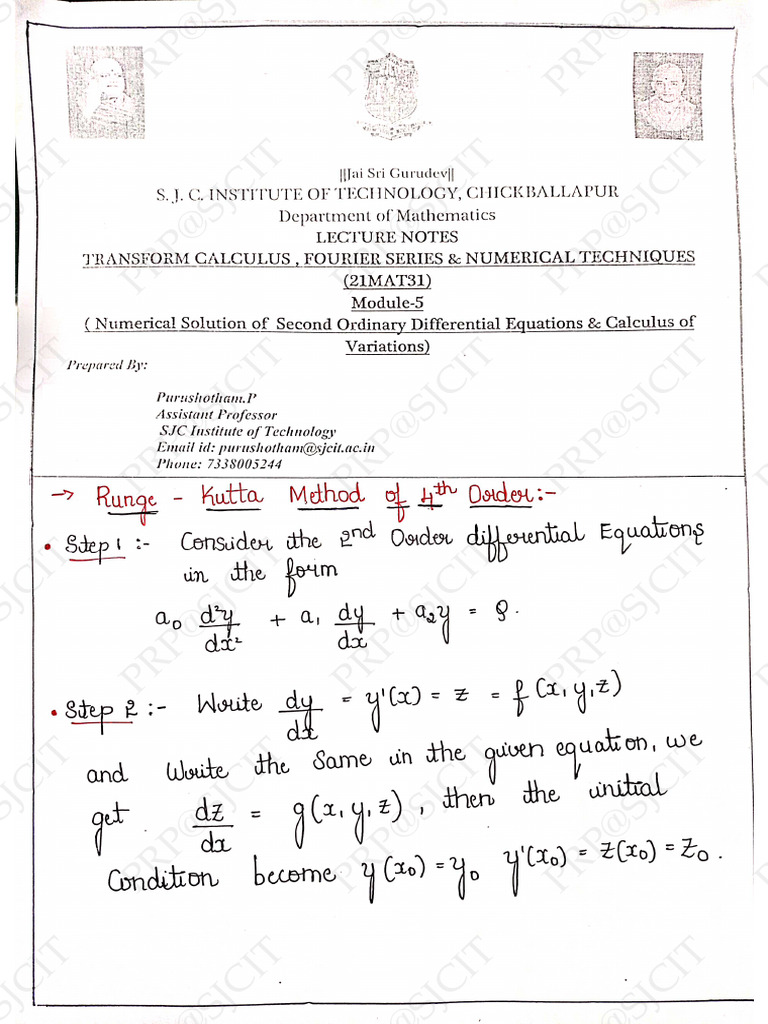 ||Jai Sri Gurudev||
S. J. C. INSTITUTE OF TECHNOLOGY, CHICKBALLAPUR
Department of Mathematics
LECTURE NOTES
TRANSFORM CALCULUS , FOURIER SERIES & NUMERICAL TECHNIQUES
(21MAT31)
Module-5
( Numerical Solution of Second Ordinary Differential Equations & Calculus of
Variations)
Prepared By:
Purushotham.P
Assistant Professor
SJC Institute of Technology
Email id: purushotham@sjcit.ac.in
Phone: 7338005244
→ Runge - Kutta Method of 4th Order:-
• Step 1 :- Consider the 2nd Order differential Equations
in the form
a₀ d²y/dx² + a₁ dy/dx + a₂y = ρ.
• Step 2 :- Write dy/dx = y'(x) = z = f(x,y,z)
and Write the Same in the given equation, we
get dz/dx = g(x,y,z), then the initial
Condition become y(x₀) = y₀ y'(x₀) = z(x₀) = z₀.
PRP@SJCIT